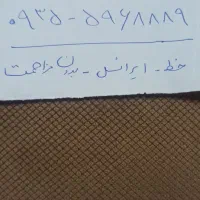 ۰۹۳۵-۵۹۶۸۸۸۹
خط - ایرانسل - بدون مزاحمت